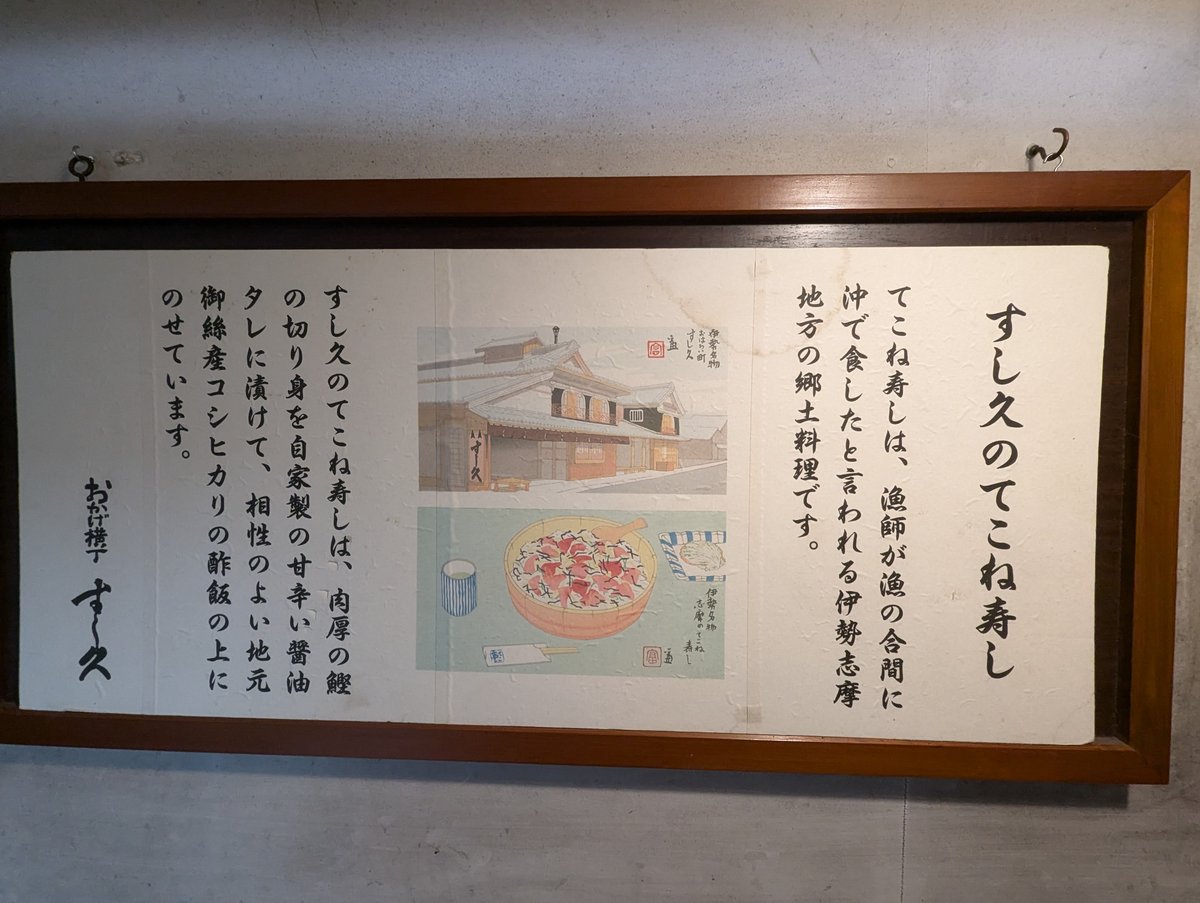 すし久のてこね寿し
てこね寿しは、漁師が漁の合間に
沖で食したと言われる伊勢志摩
地方の郷土料理です。
伊勢名物
おはらい町
すし久
すし久
伊勢名物
志摩のてこね
寿し
すし久のてこね寿しは、肉厚の鰹
の切り身を自家製の甘辛い醤油
タレに漬けて、相性のよい地元
御絲産コシヒカリの酢飯の上に
のせています。
おかげ横丁
すし久